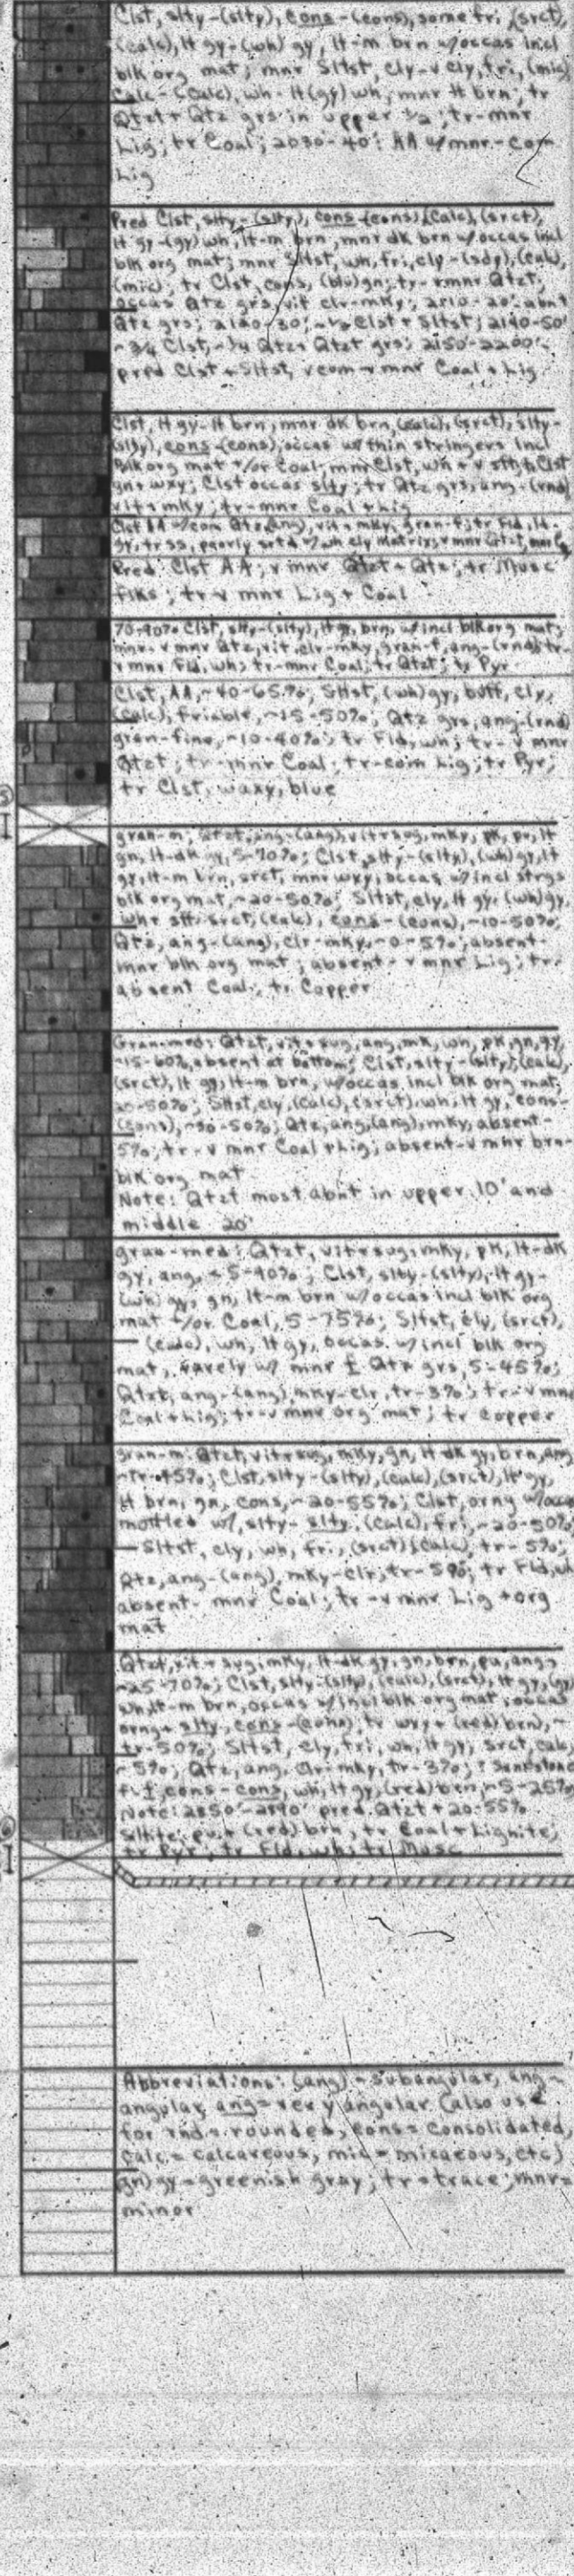 Clst, slty-(slty), cons-(cons), some fri, (srct),
(calc), lt gy-(wh) gy, lt-m brn w/occas incl
blk org mat; mnr Sltst, cly-v cly, fri, (mic)
Calc-(calc), wh-lt (gy) wh, mnr lt brn; tr
Qtzt + Qtz grs in upper 1/2; tr-mnr
Lig; tr Coal; 2030-40': AA w/mnr-com
Lig
Pred Clst, slty-(slty), cons-(cons), (calc), (srct),
lt gy-(gy) wh, lt-m brn, mnr dk brn w/occas incl
blk org mat; mnr Sltst, wh, fri, cly-(sdy), (calc),
(mic); tr Clst, cons, (blu) gn; tr-v mnr Qtzt;
occas Qtz grs, vit clr-mky; 2110-20': abnt
Qtz grs; 2120-30': ~1/2 Clst + Sltst; 2140-50'
~3/4 Clst, ~1/4 Qtz + Qtzt grs; 2150-2200':
pred Clst + Sltst, v com-v mnr Coal + Lig
Clst, lt gy-lt brn, mnr dk brn, (calc), (srct), slty-
(slty), cons-(cons), occas w/thin stringers incl
Blk org mat +/or Coal; mnr Clst, wh + v sft; tr Clst
gn + wxy; Clst occas slty; tr Qtz grs, ang-(rnd)
vit + mky; tr-mnr Coal + Lig
Clst AA w/com Qtz, (ang), vit + mky, gran-f; tr Fld, lt-
gy, tr ss, poorly srtd w/wh cly matrix; v mnr Qtzt,
Pred Clst AA; v mnr Qtzt + Qtz; tr Musc
flks; tr-v mnr Lig + Coal
70-90% Clst, slty-(slty), lt gy, brn, w/incl blk org mat;
mnr-v mnr Qtz, vit, clr-mky, gran-f, ang-(rnd); tr-
v mnr Fld, wh; tr-mnr Coal; tr Qtzt; tr Pyr
Clst, AA, ~40-65%; Sltst, (wh) gy, buff, cly,
(calc), friable, ~15-50%; Qtz grs, ang-(rnd)
gran-fine, ~10-40%; tr Fld, wh; tr-v mnr
Qtzt; tr-mnr Coal; tr-com Lig; tr Pyr;
tr Clst, waxy, blue
gran-m, Qtzt, ang-(ang), vit + sug, mky, pk, pu, lt
gn, lt-dk gy, 5-70%; Clst, slty-(slty), (wh) gy, lt
gy, lt-m brn, srct, mnr wxy, occas w/incl strgs
blk org mat, ~20-50%; Sltst, cly, lt gy, (wh) gy,
wh + sft, srct, (calc), cons-(cons), ~10-50%;
Qtz, ang-(ang), clr-mky, ~0-5%; absent-
mnr blk org mat; absent-v mnr Lig; tr-
absent Coal; tr Copper
Gran-med: Qtzt, vit + sug, ang, mk, wh, pk, gn, gy,
~15-60%, absent at bottom; Clst, slty-(slty), (calc),
(srct), lt gy, lt-m brn, w/occas incl blk org mat,
20-50%; Sltst, cly, (calc), (srct), wh, lt gy, cons-
(cons), ~30-50%; Qtz, ang, (ang), mky, absent-
5%; tr-v mnr Coal + Lig; absent-v mnr brn-
blk org mat
Note: Qtzt most abnt in upper 10' and
middle 20'
gran-med: Qtzt, vit + sug, mky, pk, lt-dk
gy, ang, ~5-90%; Clst, slty-(slty), lt gy-
(wh) gy, gn, lt-m brn w/occas incl blk org
mat +/or Coal, 5-75%; Sltst, cly, (srct),
(calc), wh, lt gy, occas w/incl blk org
mat, rarely w/ mnr f Qtz grs, 5-45%;
Qtzt, ang-(ang), mky-clr, tr-3%; tr-v mnr
Coal + Lig; tr-v mnr org mat; tr Copper
gran-m: Qtzt, vit + sug, mky, gn, lt-dk gy, brn, ang
~tr-45%; Clst, slty-(slty), (calc), (srct), lt gy,
lt brn, gn, cons, ~20-55%; Clst, orng w/occas
mottled w/, slty-slty, (calc), fri, ~20-50%;
Sltst, cly, wh, fri, (srct), (calc), tr-5%;
Qtz, ang-(ang), mky-clr; tr-5%; tr Fld, wh
absent-mnr Coal; tr-v mnr Lig + org
mat
Qtzt, vit + sug, mky, lt-dk gy, gn, brn, pu, ang,
~25-70%; Clst, slty-(slty), (calc), (srct), lt gy, (gy)
wh, lt-m brn, occas w/incl blk org mat, occas
orng + slty, cons-(cons), tr wxy + (red) brn), ~
tr-50%; Sltst, cly, fri, wh, lt gy, srct, calc,
~5%; Qtz, ang, clr-mky, tr-3%; ? Sandstone
f, cons-cons, wh, lt gy, (red) brn, ~5-25%
Note: 2850'-2890' pred. Qtzt + 20-55%
pu + (red) brn, tr Coal + Lignite,
tr Pyr, tr Fld, wh, tr Musc
Abbreviations: (ang) = subangular, ang =
angular, ang = very angular (also use
for rnd = rounded, cons = consolidated,
calc = calcareous, mic = micaeous, etc)
(gn) gy = greenish gray; tr = trace; mnr =
minor